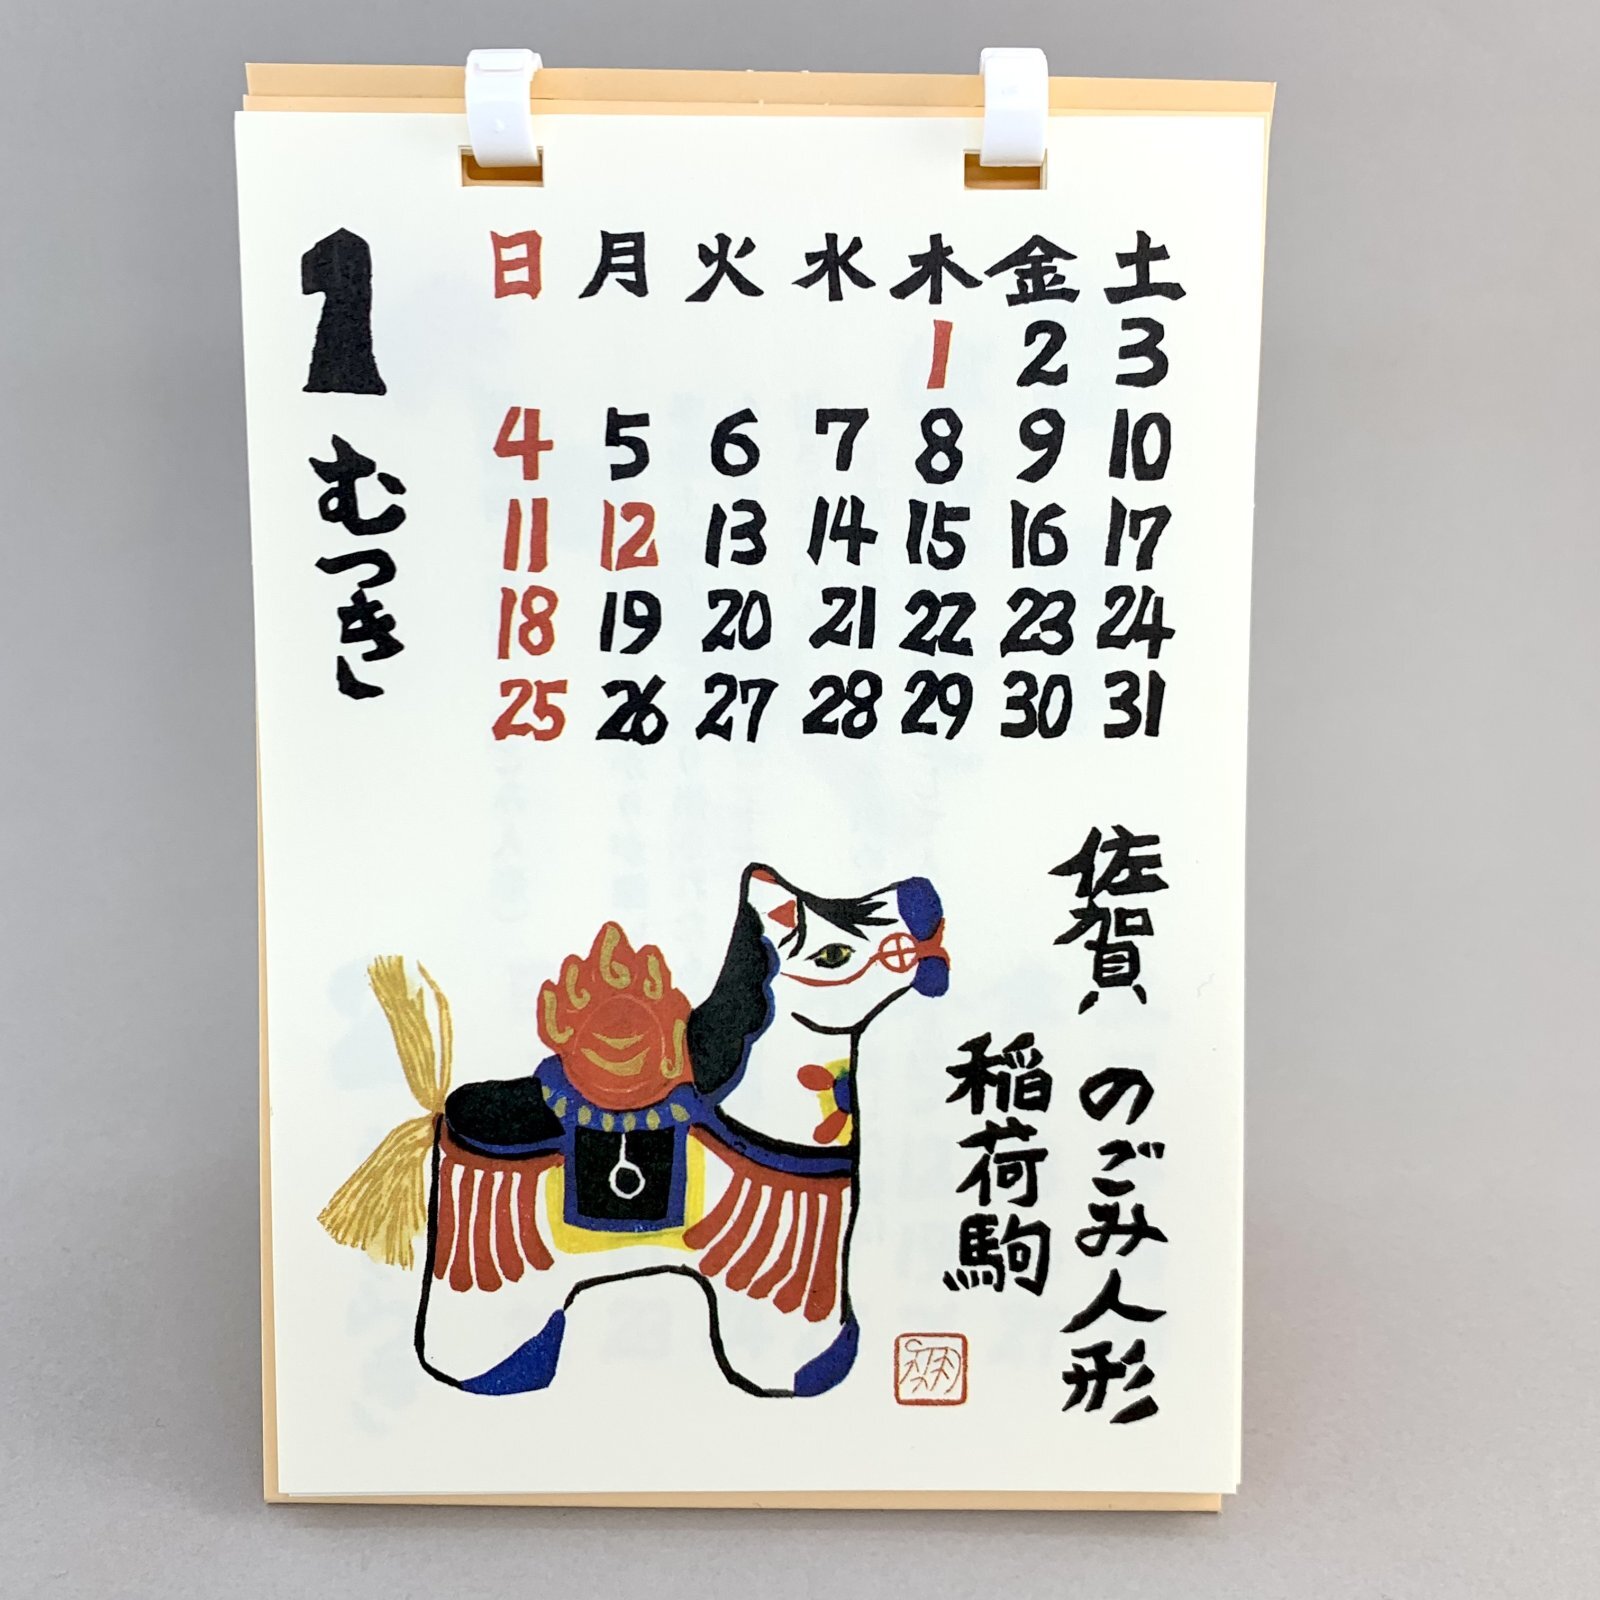 1 むつき
日 月 火 水 木 金 土
1 2 3
4 5 6 7 8 9 10
11 12 13 14 15 16 17
18 19 20 21 22 23 24
25 26 27 28 29 30 31
佐賀 のごみ人形
稲荷駒